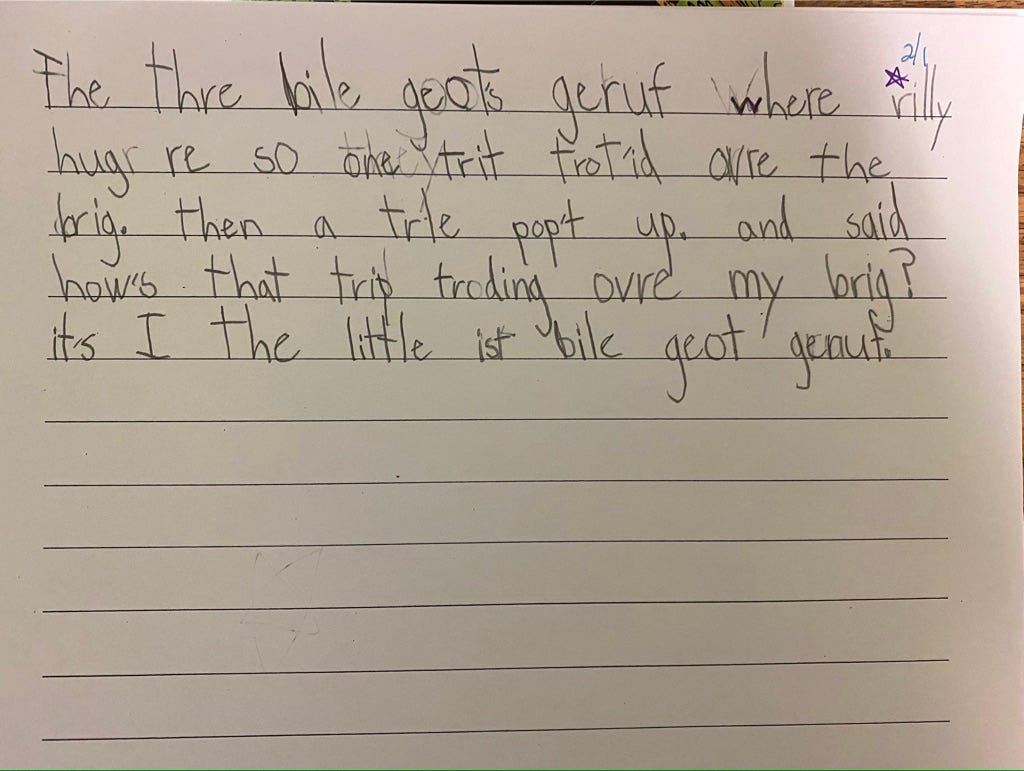 2/1
The thre bile geots geruf where rilly
hugr re so one trit trot'id ovre the
brig. then a trle pop't up. and said
how's that trip troding ovre my brig?
it's I the little ist bile geot gerauf.